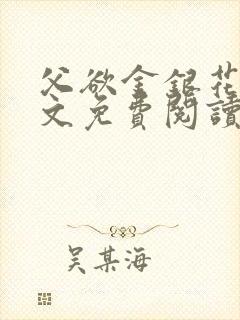 父欲金銀花
文免費閱讀
吴某海